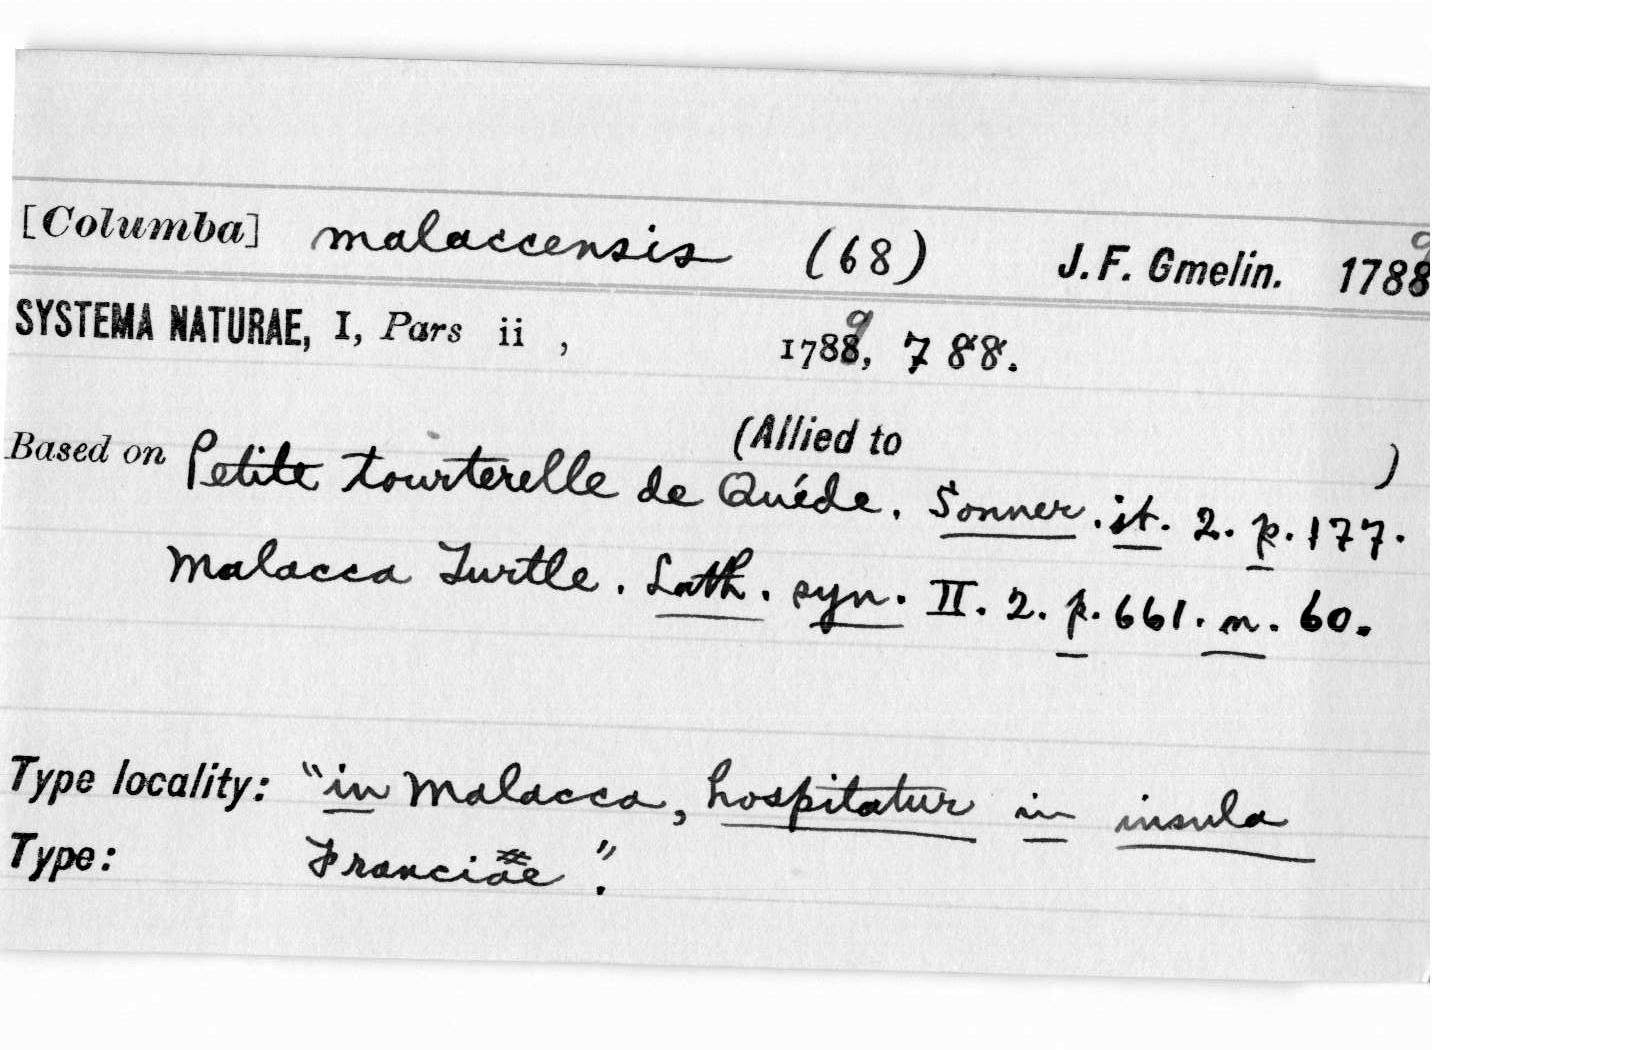 [Columba] malaccensis (68) J. F. Gmelin. 1789
SYSTEMA NATURAE, I, Pars ii , 1789, 788.
(Allied to )
Based on Petite tourterelle de Quéde. Sonner. it. 2. p. 177.
Malacca Turtle. Lath. syn. II. 2. p. 661. n. 60.
Type locality: "in Malacca, hospitatur in insula
Type: Franciae".